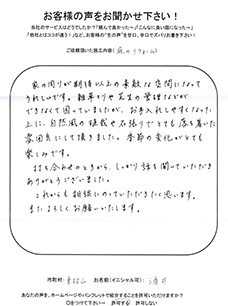 お客様の声をお聞かせ下さい！
当社のサービスはどうでしたか？「頼んで良かった～」「こんなに良い庭になった～」
「他社とはココが違う！」など、お客様の"生の声"を甘口、辛口でズバリお書き下さい！
ご依頼頂いた施工内容（庭のリフォーム）
家の周りが期待以上の素敵な空間になって
うれしいです。雑草とりや芝生の管理などが
できなくて困っていましたが、お手入れしやすくなった
上に、自然風の植栽や石張りでとても落ち着いた
雰囲気にして頂きました。季節の変化がとても
楽しみです。
打ち合わせのときから、しっかり話を聞いていただき
ありがとうございました。
これからも相談にのっていただきたく思います。
またよろしくお願いいたします。
市町村： お名前(イニシャル可)：
あなたの声を、ホームページやパンフレットで紹介することを許可いただけますか？
○をつけて下さい→ 許可する 許可しない